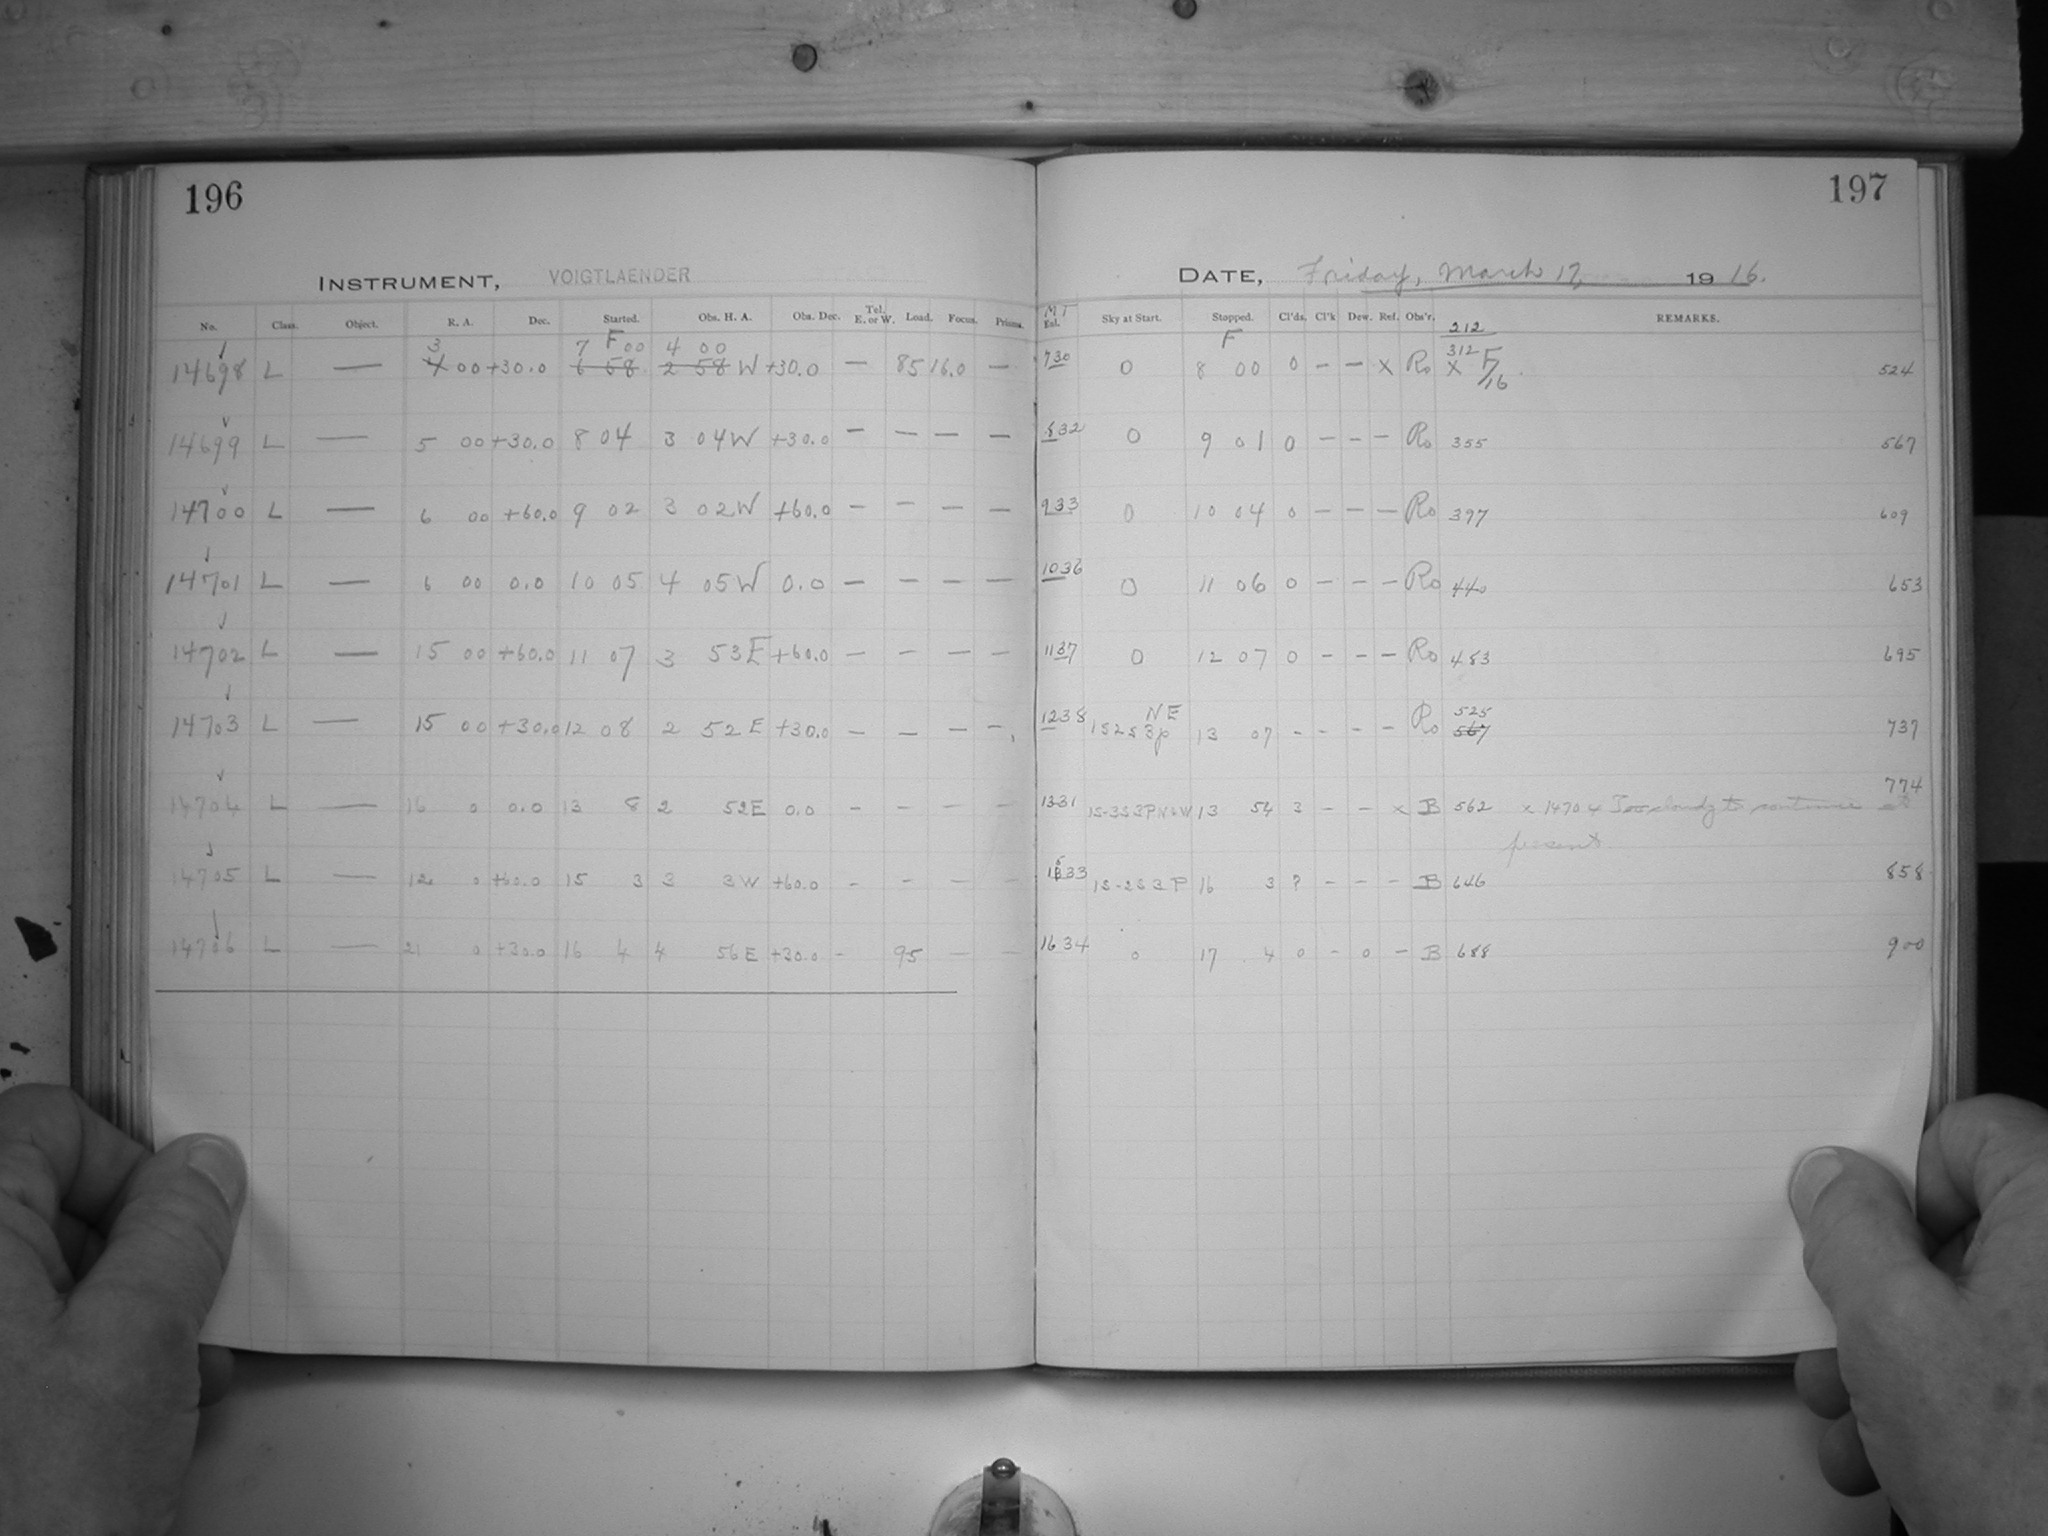 196
INSTRUMENT, VOIGTLAENDER
No. Class. Object. R. A. Dec. Started. Obs. H. A. Obs. Dec. Tel. E. or W. Load. Focus. Prisms.
3 7 F 00 4 00
14698 L — 4 00 +30.0 6 58 2 58 W +30.0 — 85 16.0 —
14699 L — 5 00 +30.0 8 04 3 04 W +30.0 — — — —
14700 L — 6 00 +60.0 9 02 3 02 W +60.0 — — — —
14701 L — 6 00 0.0 10 05 4 05 W 0.0 — — — —
14702 L — 15 00 +60.0 11 07 3 53 E +60.0 — — — —
14703 L — 15 00 +30.0 12 08 2 52 E +30.0 — — — —
14704 L — 16 0 0.0 13 8 2 52 E 0.0 - - - -
14705 L — 12 0 +60.0 15 3 3 3 W +60.0 - - - -
14706 L — 21 0 +30.0 16 4 4 56 E +30.0 - 95 — —
197
DATE, Friday, March 17, 1916.
MT
Ext. Sky at Start. Stopped. Cl'ds. Cl'k Dew. Ref. Obs'r. REMARKS.
F 212
312
730 0 8 00 0 — — x Ro x F/16 524
832 0 9 01 0 — — — Ro 355 567
933 0 10 04 0 — — — Ro 397 609
1036 0 11 06 0 — — — Ro 440 653
1137 0 12 07 0 — — — Ro 483 695
NE 525
1238 1S2S3p 13 07 - - - - Ro 567 737
774
1331 1S-3S3PN&W 13 54 3 - - x B 562 x 14704 Too cloudy to continue at
present.
5
1333 1S-2S3P 16 3 ? - - - B 646 858
1634 0 17 4 0 - 0 - B 688 900